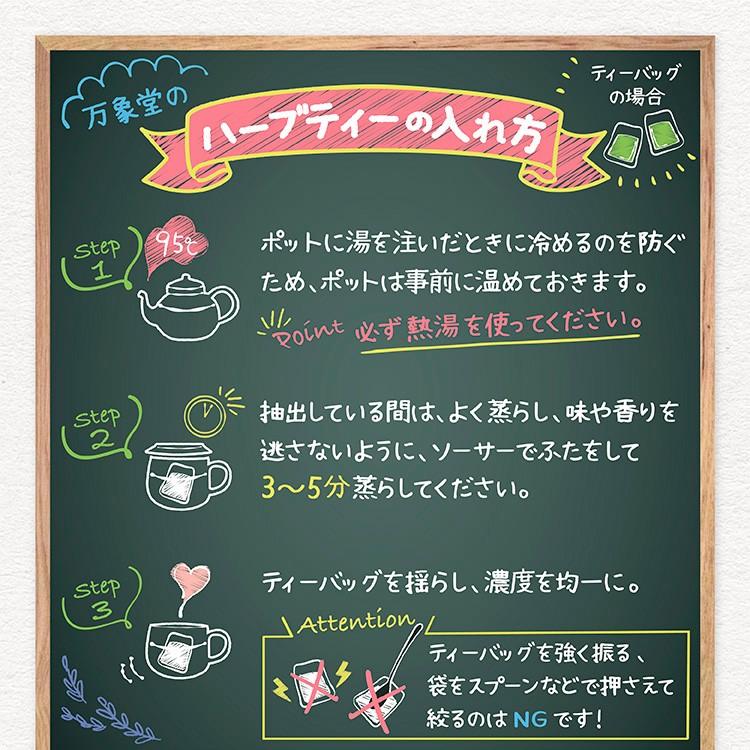 万象堂の
ハーブティーの入れ方
ティーバッグ
の場合
Step
1
95℃
ポットに湯を注いだときに冷めるのを防ぐ
ため、ポットは事前に温めておきます。
Point 必ず熱湯を使ってください。
Step
2
抽出している間は、よく蒸らし、味や香りを
逃さないように、ソーサーでふたをして
3〜5分蒸らしてください。
Step
3
ティーバッグを揺らし、濃度を均一に。
Attention
ティーバッグを強く振る、
袋をスプーンなどで押さえて
絞るのはNGです!